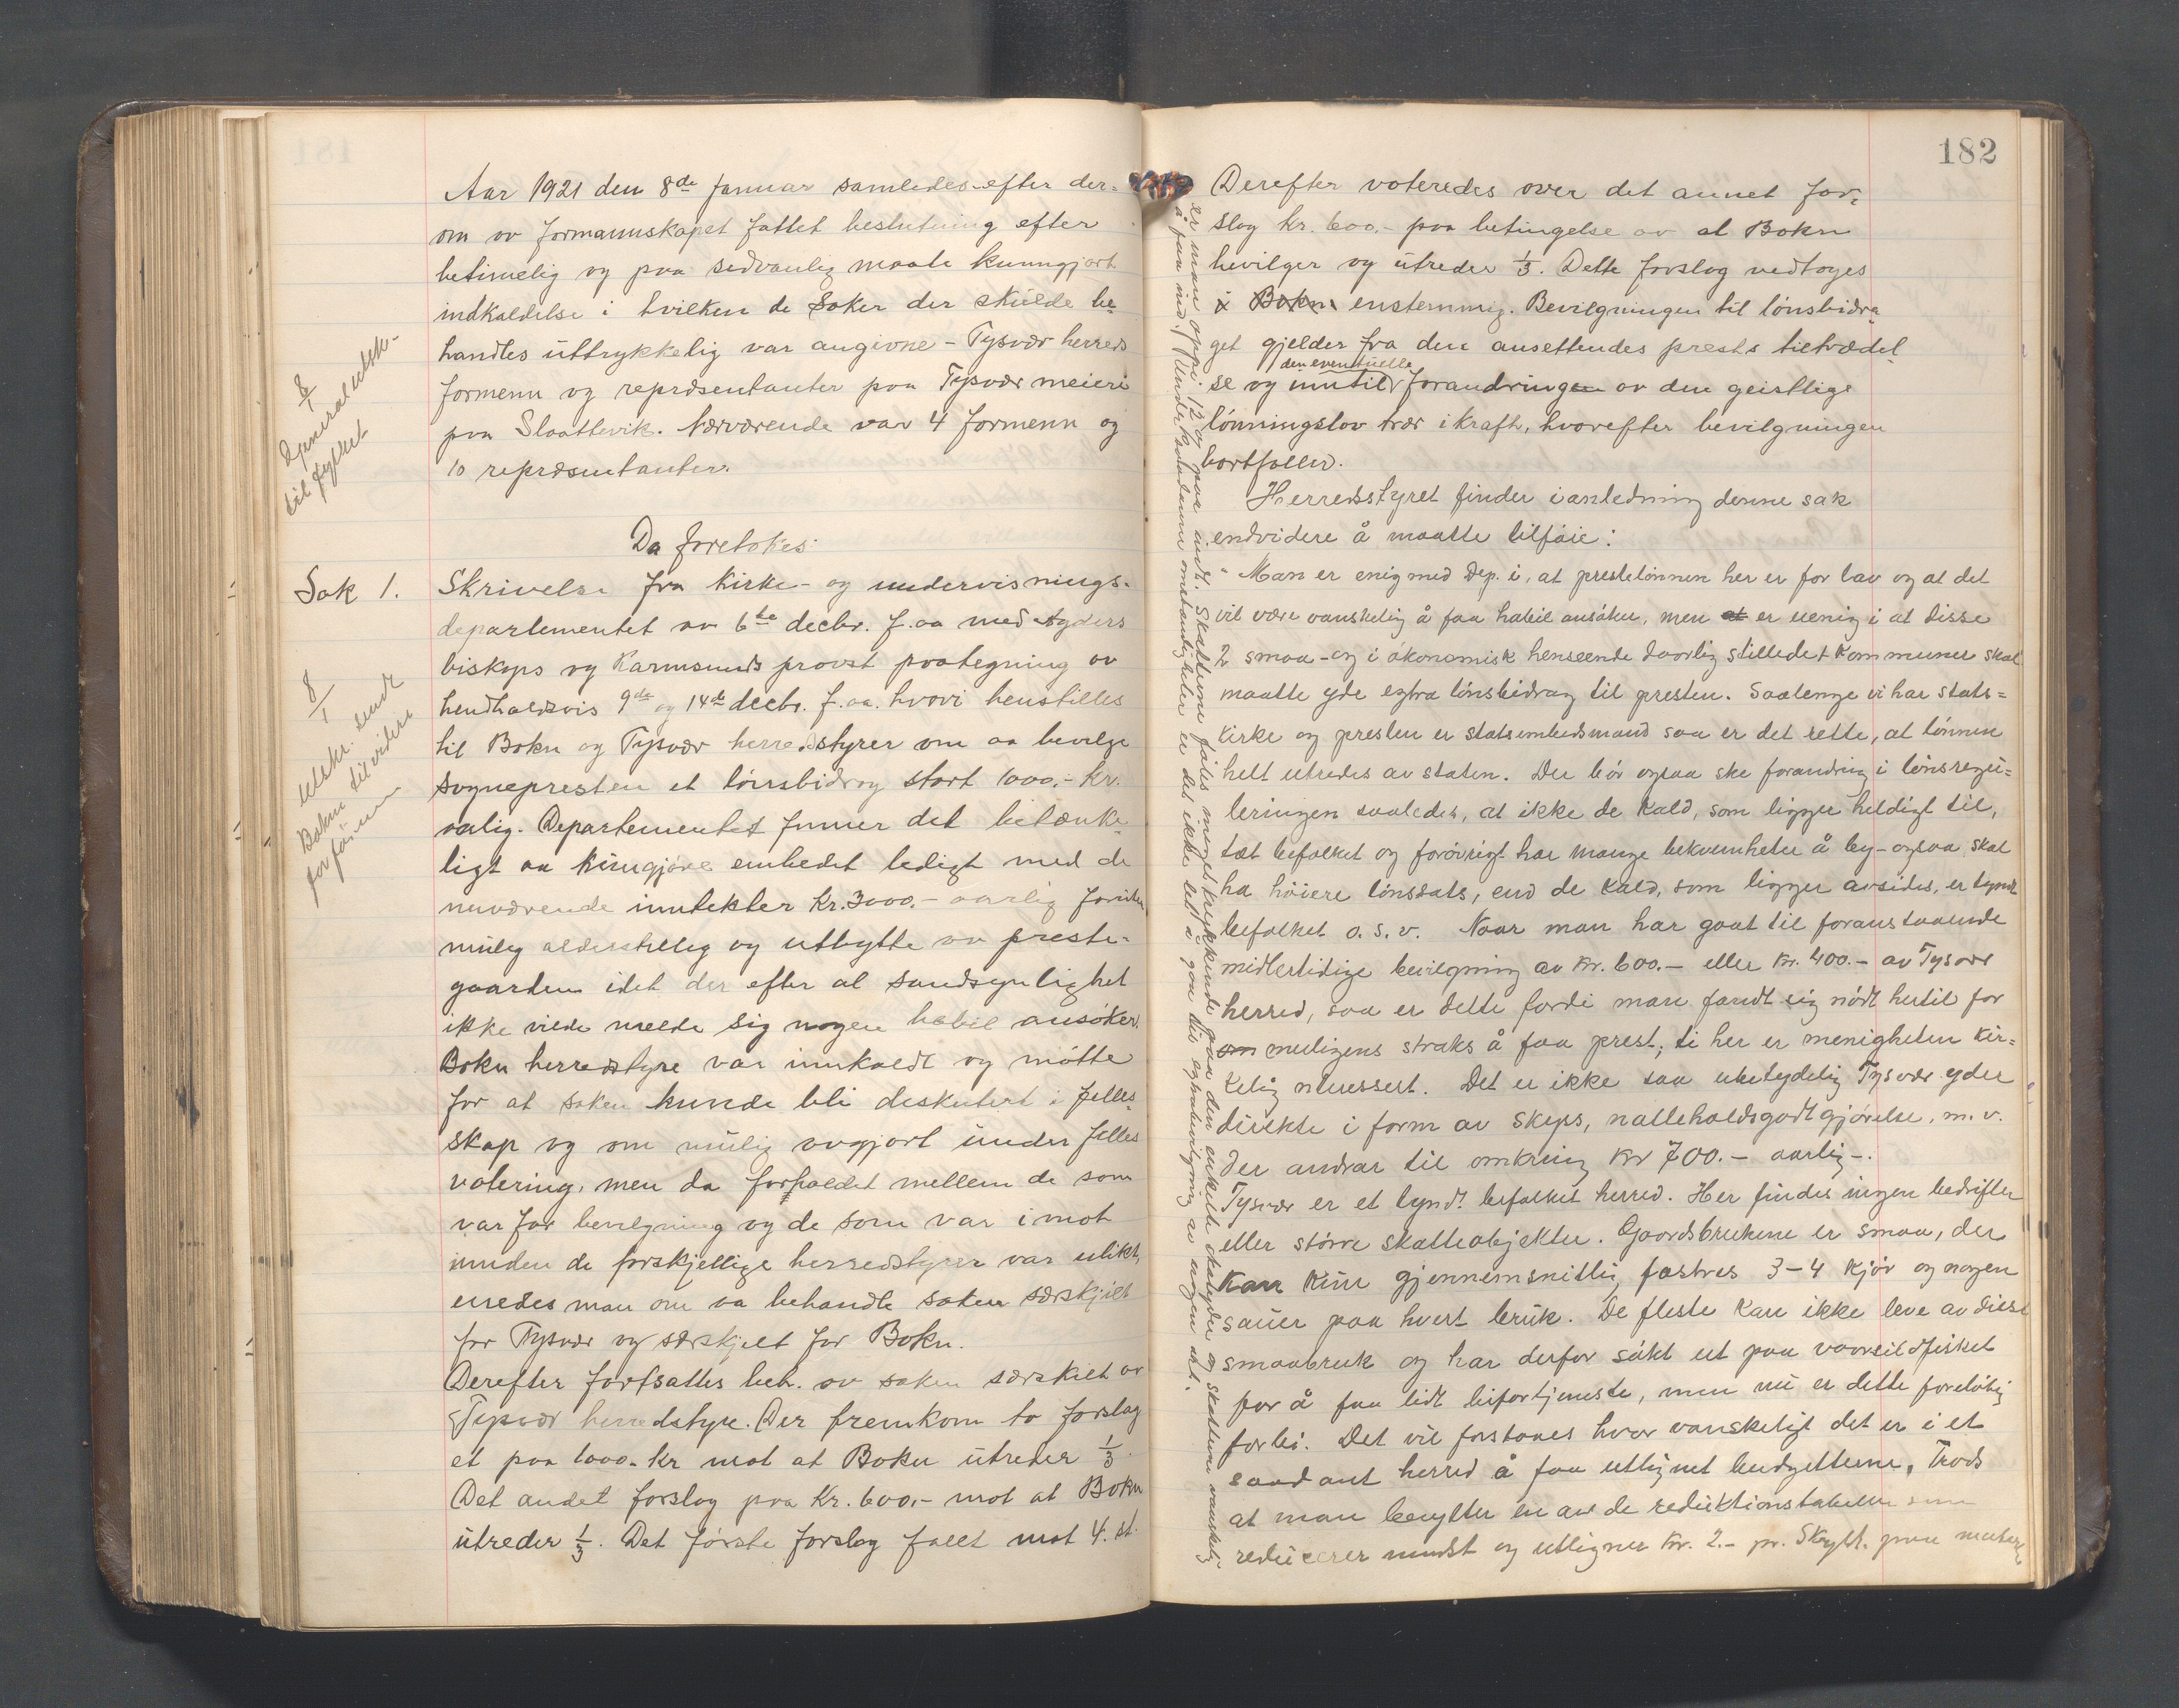 Aar 1921 den 8de Januar samledes efter der-
om av formannskapet fattet beslutning efter
betimelig og paa sedvanlig maate kunngjort
indkaldelse i hvilken de Saker der skulde be-
handles uttrykkelig var angivne - Tysvær herreds
formenn og repræsentanter paa Tysvær meieri
paa Slaattevik. Nærværende var 4 formenn og
10 repræsentanter.
8/1
Generaludsk-
til fylket
Da foretokes:
Sak 1.
Skrivelse fra Kirke- og undervisnings-
departementet av 6te decbr. f.aa med Agders
biskops og Karmsunds provst paategning av
hendholdsvis 9de og 14de decbr. f.aa. hvori henstilles
til Bokn og Tysvær herredsstyrer om aa bevilge
sognepresten et lønsbidrag stort 1000,- kr.
aarlig. Departementet finner det betænke-
ligt aa kungjøre embedet ledigt med de
nuværende inntekter Kr. 3000.- aarlig foruten
mulig alderstillæg og utbytte av preste-
gaarden idet der efter al sandsynlighet
ikke vilde melde sig nogen habil ansøker.
Bokn herredstyre var innkaldt og møtte
for at saken kunde bli diskutert i felles-
skap og om mulig avgjort under felles
votering, men da forholdet mellem de som
var for bevilgning og de som var imot
innden de forskjellige herredstyrer var ulikt,
enedes man om aa behandle saken særskjilt
for Tysvær og særskjilt for Bokn.
Derefter fortsattes beh. av saken særskilt av
Tysvær herredstyre. Der fremkom to forslag
et paa 1000.- kr mot at Bokn utreder 1/3.
Det andet forslag paa Kr. 600.- mot at Bokn
utreder 1/3. Det første forslag falt mot 4 st.
8/1
Utskr. sendt
Bokn til videre
for føi
182
Derefter voteredes over det annet for-
slag kr. 600.- paa betingelse av at Bokn
bevilger og utreder 1/3. Dette forslag vedtoges
i Bokn enstemmig. Bevilgningen til lønsbidra-
get gjelder fra den ansettendes prests tiltrædel-
se og inntil den eventuelle forandringen av den geistlige
lønningslov trær i kraft, hvorefter bevilgningen
bortfaller.
Herredsstyret finder i anledning denne sak
endvidere å maatte tilføie:
" Man er enig med Dep. i, at prestelønnen her er for lav og at det
vil være vanskelig å faa habil ansøker, men at er uenig i at disse
2 smaa- og i økonomisk henseende daarlig stillede Kommuner skal
maatte yde extra lønsbidrag til presten. Saalenge vi har stats-
kirke og presten er statsembedsmand saa er det rette, at lønnen
helt utredes av staten. Der bør ogsaa ske forandring i lønsregu-
leringen saaledes, at ikke de Kald, som ligger heldigt til,
tæt befolket og forøvrigt har mange bekvemheter å by - ogsaa skal
ha høiere lønssats, end de Kald, som ligger avsides, er tyndt
befolket o. s. v. Naar man har gaat til foranstaaende
midlertidige bevilgning av Kr. 600.- eller Kr. 400.- av Tysvær
herred, saa er dette fordi man fandt sig nødt hertil for
om muligens straks å faa prest; ti her er menigheten Kir-
kelig interessert. Det er ikke saa ubetydelig Tysvær yder
direkte i form av Skyss, natteholdsgodtgjørelse, m. v.
Der andrar til omkring Kr 700.- aarlig.-
Tysvær er et tyndt befolket herred. Her findes ingen bedrifter
eller større skatteobjekter. Gaardsbrukene er smaa, der
Kan Kun gjennemsnitlig fostres 3-4 Kjør og nogen
sauer paa hvert bruk. De fleste Kan ikke leve av disse
smaabruk og har derfor søkt ut paa vaarsildfisket
for å faa lidt bifortjeneste, men nu er dette foreløbig
forbi. Det vil forstaaes hvor vanskeligt det er i et
saadant herred å faa utlignet budgetterne. Trods
at man benytter en av de reduktionstabeller som
reducerer mindst og utligner Kr. 2.- pr. Skyld. paa
er man oppi 12 og paa indt. Skatterne føles meget trykkende paa den enkelte skatyder og skatterne vanskelig
å faa ind. Under saadanne omstændigheter er det ikke let å gaa til extrabevilgning av nogen art.